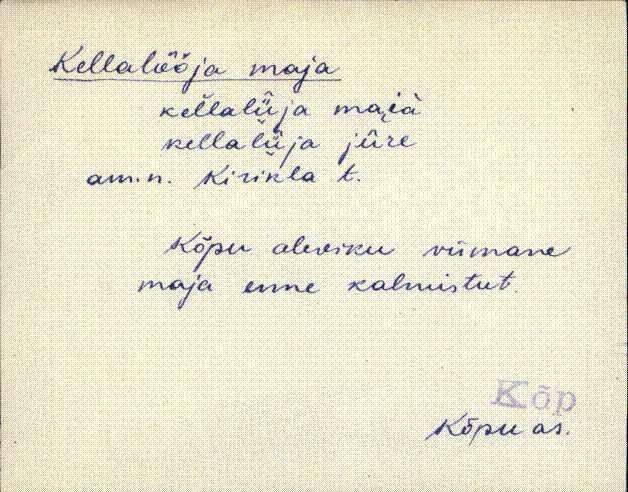 Kellalööja maja
kellalüja maià
kellalüja jüre
am.n. Kirikla t.
Kõpu aleviku viimane
maja enne kalmistut.
Kõp
Kõpu as.